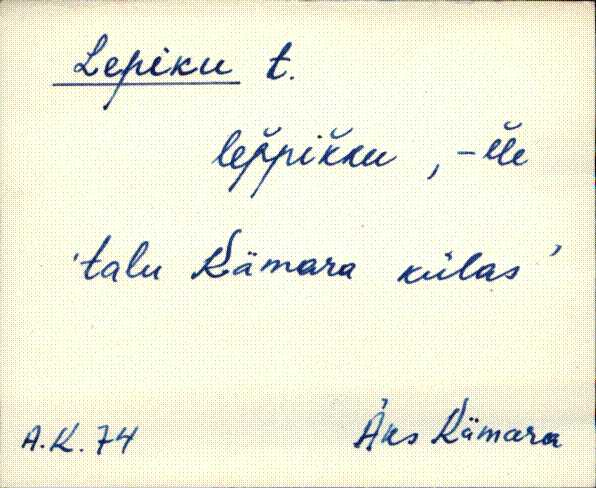 Lepiku t.
lep̆pik̆ku, -l̆le
'talu Kämara külas'
A.K. 74
Äks Kämara